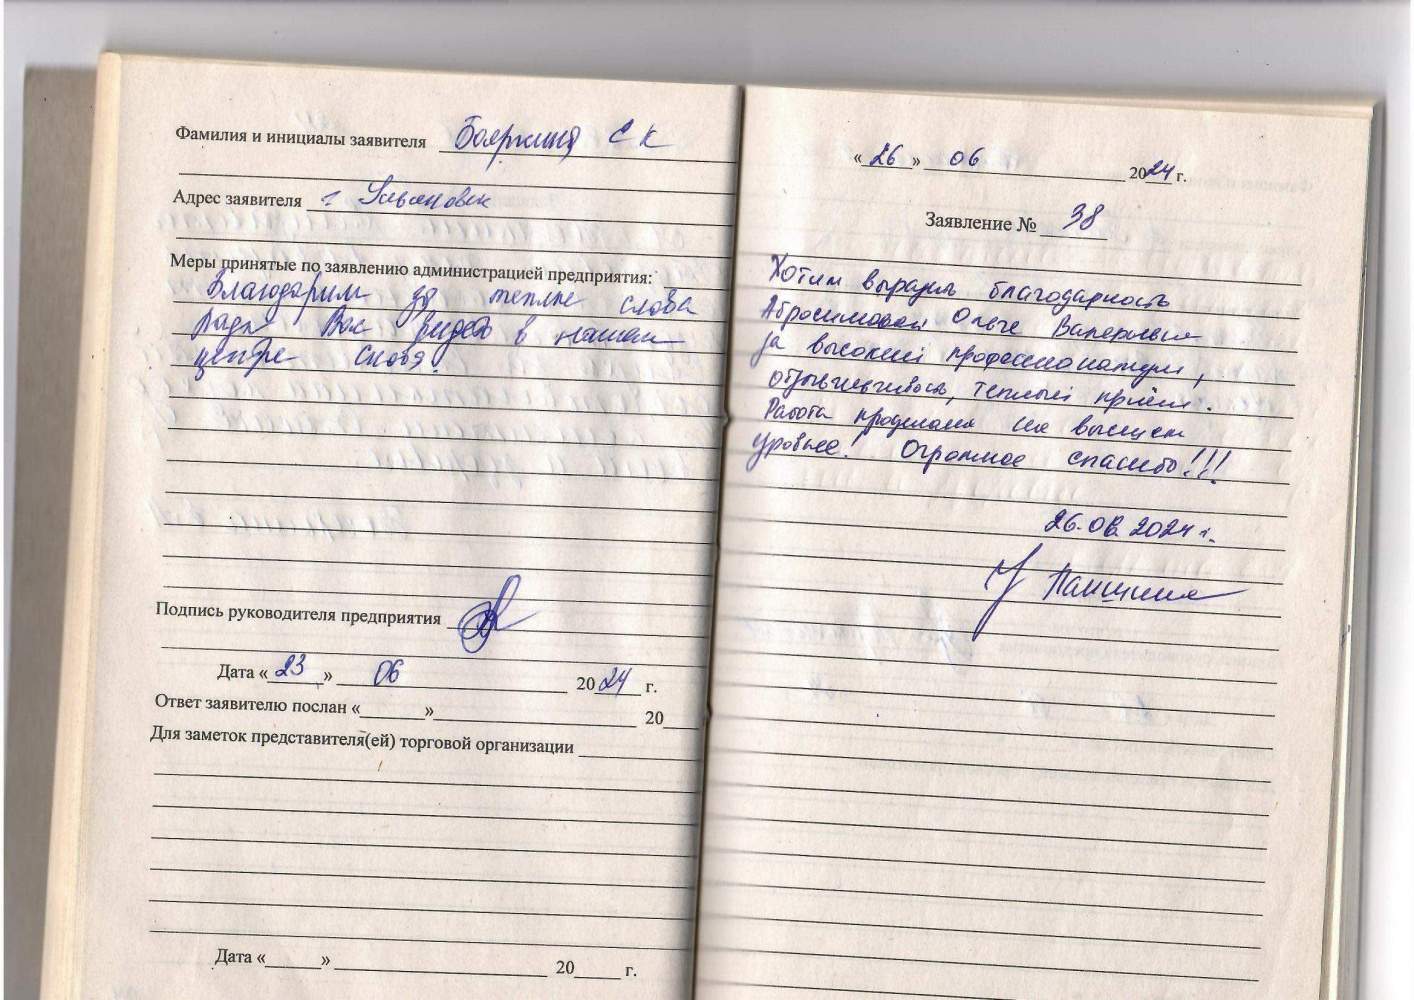 Фамилия и инициалы заявителя Бояркина С К
Адрес заявителя г Ульяновск
Меры принятые по заявлению администрацией предприятия:
Благодарим за теплые слова
Рады Вас видеть в нашем
центре снова!
Подпись руководителя предприятия
Дата «23» 06 2024 г.
Ответ заявителю послан «_______»_______ 20____
Для заметок представителя(ей) торговой организации
Дата «______» _______ 20_____ г.
«26» 06 2024 г.
Заявление № 38
Хотим выразить благодарность
Абросимовой Ольге Валерьевне
за высокий профессионализм,
отзывчивость, теплый приём.
Работа проделана на высшем
уровне! Огромное спасибо!!!
26.06.2024 г.